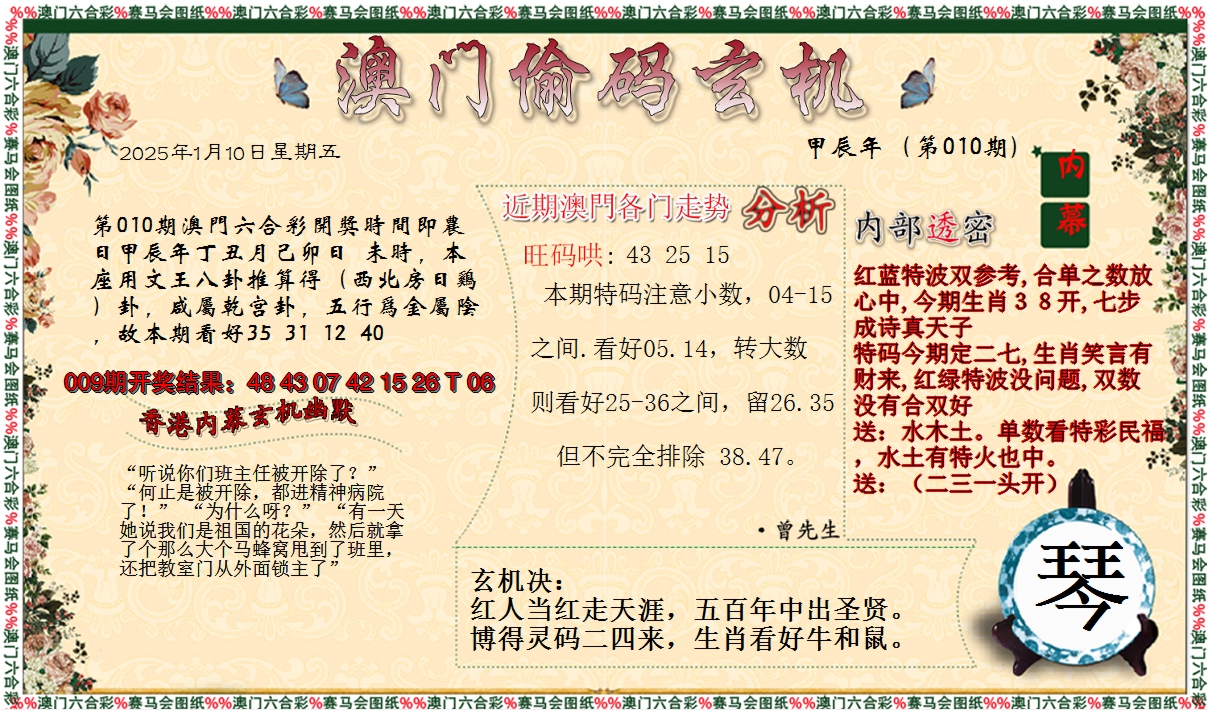 %%澳门六合彩%赛马会图纸%%澳门六合彩%赛马会图纸%%澳门六合彩%赛马会图纸%%澳门六合彩%赛马会图纸%%澳门六合彩%赛马会图纸%%澳门六合彩%赛马会图纸%%
澳门偷码玄机
2025年1月10日星期五
甲辰年（第010期）
内幕
第010期澳門六合彩開獎時間即農
日甲辰年丁丑月己卯日 未時，本
座用文王八卦推算得（西北房日鷄
）卦，咸屬乾宫卦，五行爲金屬陰
，故本期看好35 31 12 40
009期开奖结果：48 43 07 42 15 26 T 06
香港内幕玄机幽默
“听说你们班主任被开除了？”
“何止是被开除，都进精神病院
了！” “为什么呀？” “有一天
她说我们是祖国的花朵，然后就拿
了个那么大个马蜂窝甩到了班里，
还把教室门从外面锁主了”
近期澳門各门走势 分析
旺码哄: 43 25 15
本期特码注意小数，04-15
之间.看好05.14，转大数
则看好25-36之间，留26.35
但不完全排除 38.47。
·曾先生
内部透密
红蓝特波双参考,合单之数放
心中,今期生肖３８开,七步
成诗真天子
特码今期定二七,生肖笑言有
财来,红绿特波没问题,双数
没有合双好
送：水木土。单数看特彩民福
，水土有特火也中。
送：（二三一头开）
玄机决：
红人当红走天涯，五百年中出圣贤。
博得灵码二四来，生肖看好牛和鼠。
琴